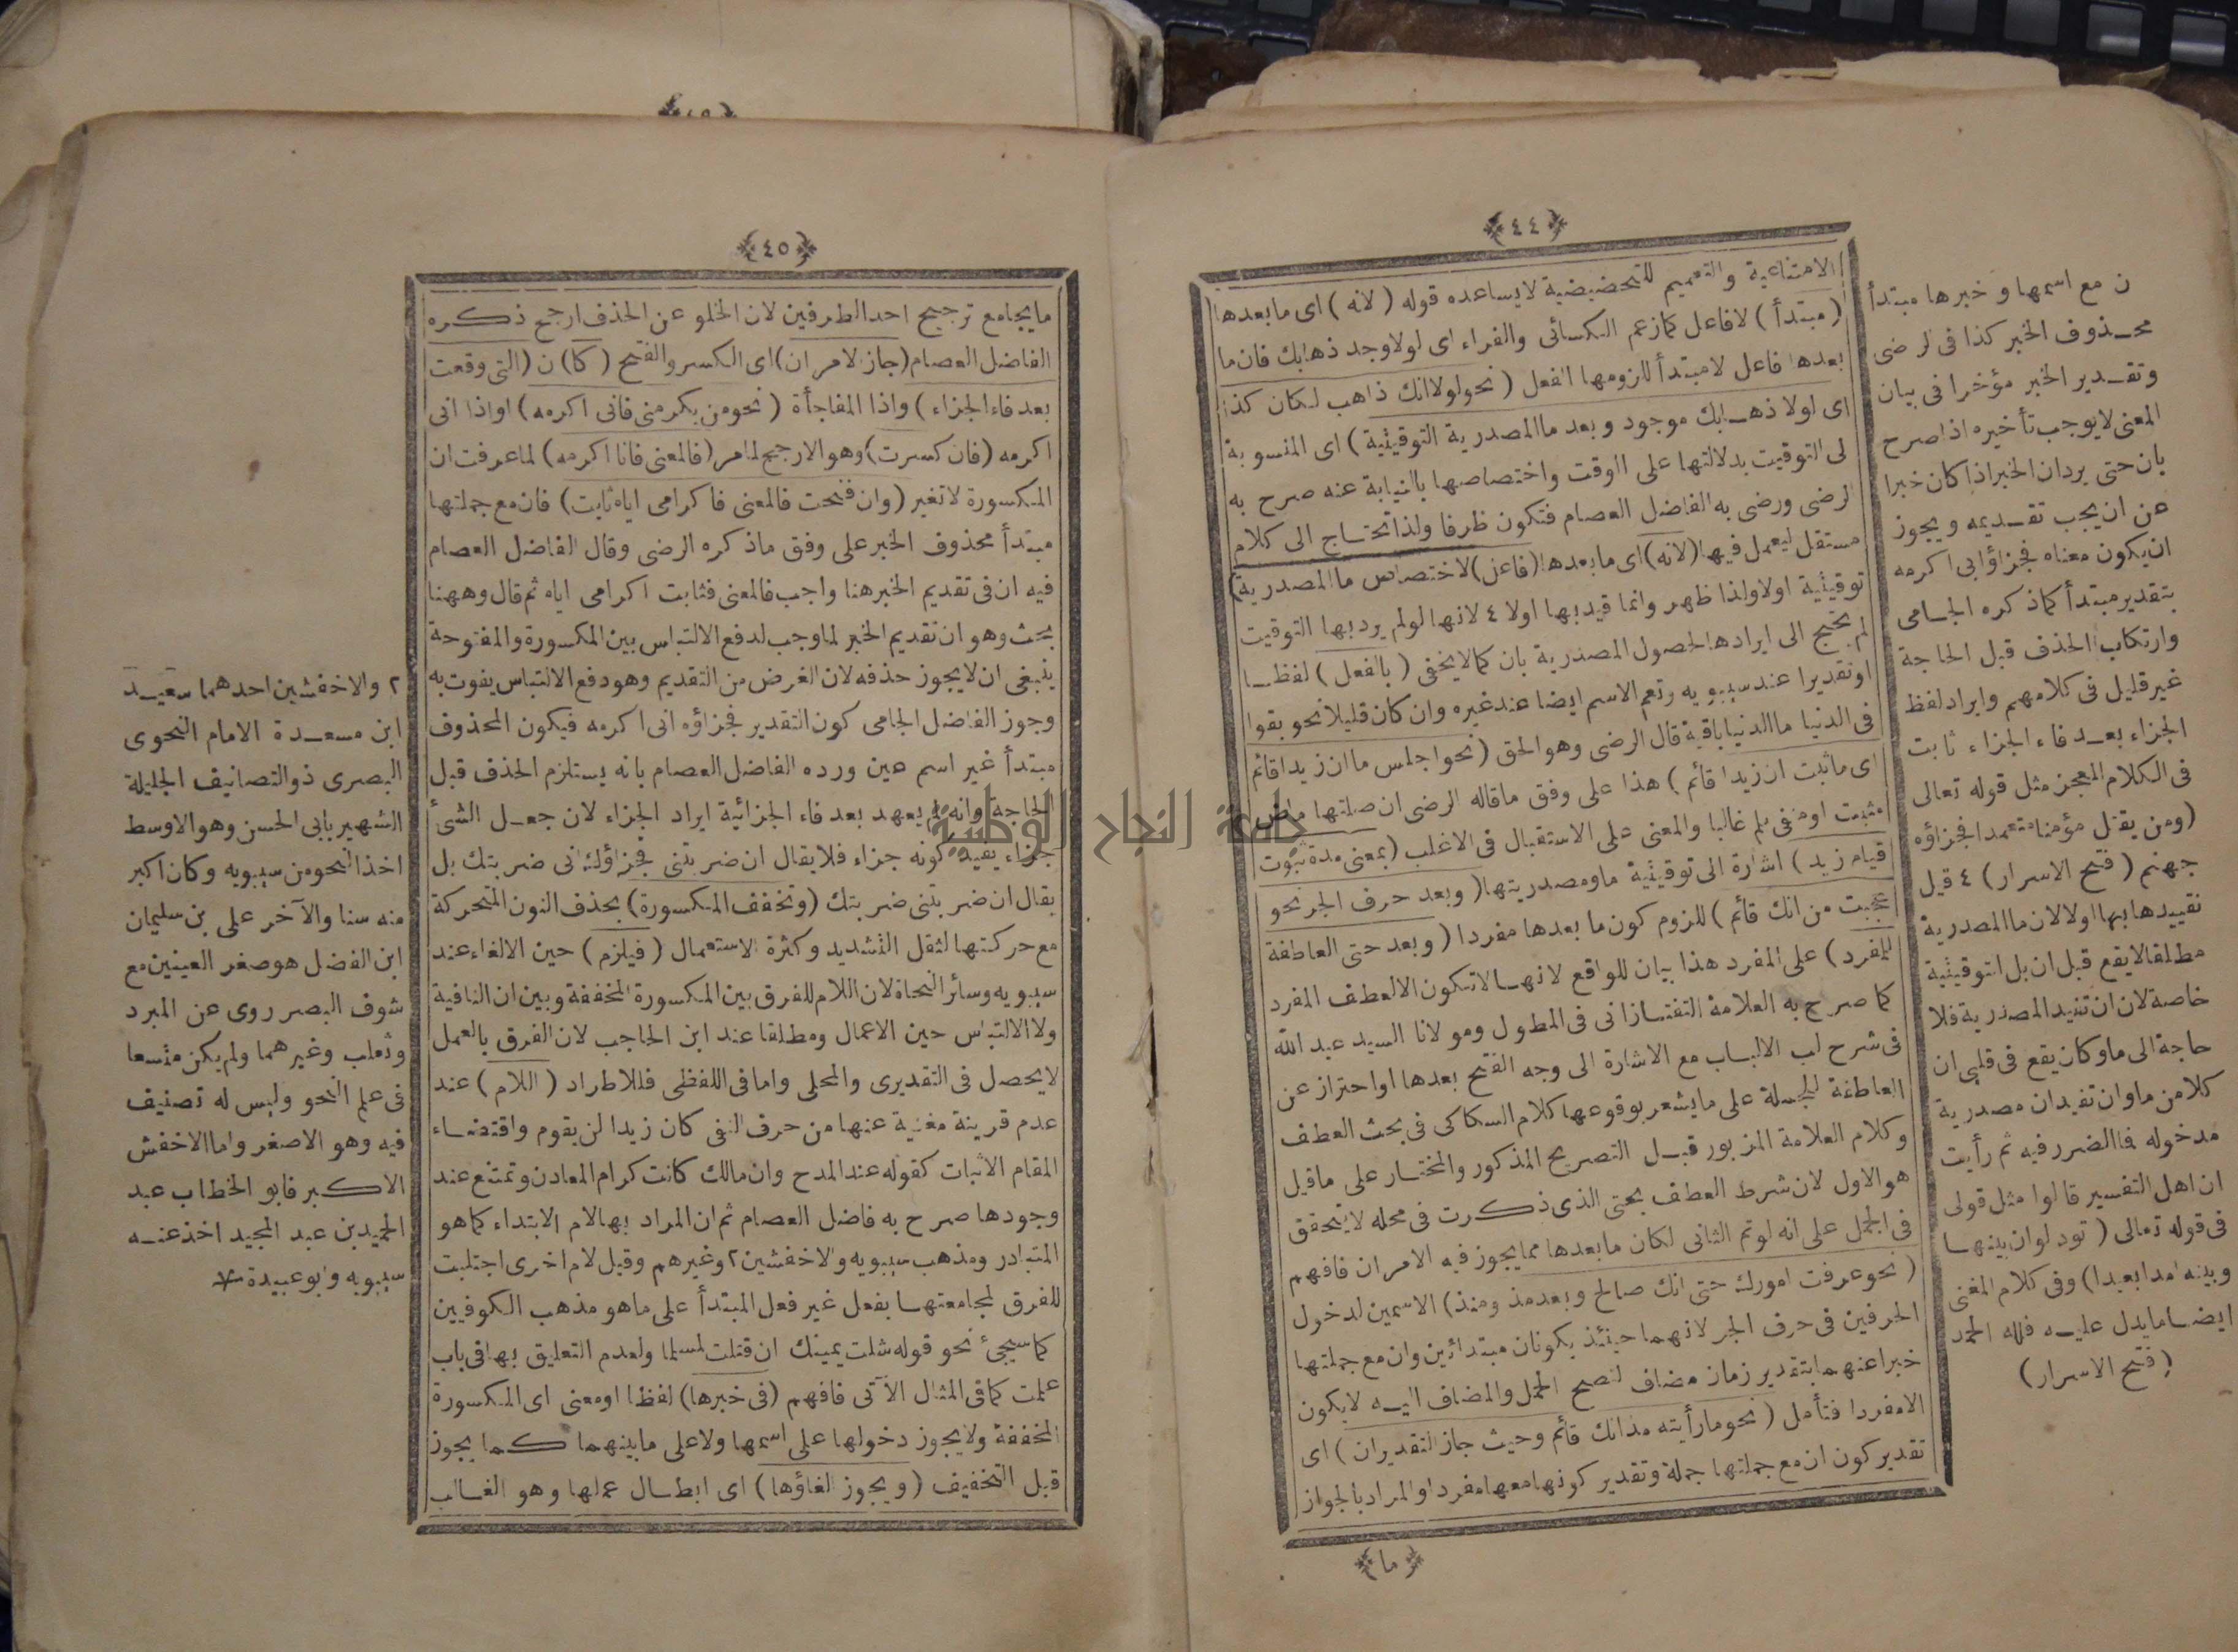 ﴿٤٤﴾
الامتناعية والتعميم للتحضيضية لايساعده قوله ( لانه ) اى مابعدها
( مبتدأ ) لافاعل كمازعم الكسائى والفراء اى لولاوجد ذهابك فان ما
بعدها فاعل لامبتدأ للزومها الفعل ( نحولولاانك ذاهب لكان كذا
اى لولا ذهابك موجود وبعد ماالمصدرية التوقيتية ) اى المنسوبة
لى التوقيت بدلالتها على الوقت واختصاصها بالنيابة عنه صرح به
الرضى ورضى به الفاضل العصام فتكون ظرفا ولذاتحتاج الى كلام
مستقل ليعمل فيها (لانه) اى مابعدها (فاعل) لاختصاص ماالمصدرية)
توقيتية اولا ولذا ظهر وانما قيدبها اولا ٤ لانها لولم يردبها التوقيت
لم يحتج الى ايرادها لحصول المصدرية بان كمالايخفى ( بالفعل ) لفظا
اوتقديرا عند سيبويه وتعم الاسم ايضا عندغيره وان كان قليلا نحو بقوا
فى الدنيا ماالدنيا باقية قال الرضى وهو الحق ( نحواجلس ماان زيدا قائم
اى ماثبت ان زيدا قائم ) هذا على وفق ماقاله الرضى ان صلتها ماض
مثبت اومنفى بلم غالبا والمعنى على الاستقبال فى الاغلب (بمعنى مدة ثبوت
قيام زيد ) اشارة الى توقيتية ماومصدريتها ( وبعد حرف الجر نحو
عجبت من انك قائم ) للزوم كون ما بعدها مفردا ( وبعد حتى العاطفة
للمفرد ) على المفرد هذا بيان للواقع لانها لاتكون الالعطف المفرد
كما صرح به العلامة التفتازانى فى المطول ومولانا السيد عبد الله
فى شرح لب الالباب مع الاشارة الى وجه الفتح بعدها اواحتراز عن
العاطفة للجملة على مايشعر بوقوعها كلام السكاكى فى بحث العطف
وكلام العلامة المزبور قبل التصريح المذكور والمختار على ماقيل
هوالاول لان شرط العطف بحتى الذى ذكرت فى محله لايتحقق
فى الجمل على انه لوتم الثانى لكان مابعدها ممايجوز فيه الامران فافهم
( نحوعرفت امورك حتى انك صالح وبعدمذ ومنذ) الاسمين لدخول
الحرفين فى حرف الجر لانهما حينئذ يكونان مبتدائين وان مع جملتها
خبراعنهما بتقدير زمان مضاف لتصحيح الحمل والمضاف اليه لايكون
الامفردا فتأمل ( نحومارأيته مذانك قائم وحيث جاز التقديران ) اى
تقديركون ان مع جملتها جملة وتقدير كونهامعها مفردا والمراد بالجواز
﴿ما﴾
ن مع اسمها وخبرها مبتدأ
محذوف الخبر كذا فى لرضى
وتقدير الخبر مؤخرا فى بيان
المعنى لايوجب تأخيره اذاصرح
بان حتى يردان الخبراذا كان خبرا
عن ان يجب تقديمه ويجوز
ان يكون معناه فجزاؤه انى اكرمه
بتقدير مبتدأ كماذكره الجامى
وارتكاب الحذف قبل الحاجة
غير قليل فى كلامهم وايرادلفظ
الجزاء بعد فاء الجزاء ثابت
فى الكلام المعجز مثل قوله تعالى
(ومن يقتل مؤمنا متعمدا فجزاؤه
جهنم ( فتح الاسرار ) ٤ قيل
تقييدها بها اولا لان ماالمصدرية
مطلقا لايقع قبل ان بل التوقيتية
خاصة لان ان تفيد المصدرية فلا
حاجة الى ماوكان يقع فى قلبى ان
كلا من ماوان تفيدان مصدرية
مدخوله فاالضرر فيه ثم رأيت
ان اهل التفسير قالوا مثل قولى
فى قوله تعالى ( تود لوان بينها
وبينه امدا بعيدا) وفى كلام المغنى
ايضا مايدل عليه فلله الحمد
( فتح الاسرار )
﴿٤٥﴾
مايجامع ترجيح احدالطرفين لان الخلو عن الحذف ارجح ذكره
الفاضل العصام (جاز الامران) اى الكسر والفتح ( كا ) ن (التى وقعت
بعد فاء الجزاء ) واذا المفاجأة ( نحومن يكرمنى فانى اكرمه ) اواذا انى
اكرمه (فان كسرت) وهو الارجح لمامر (فالمعنى فانا اكرمه ) لماعرفت ان
المكسورة لاتغير (وان فتحت فالمعنى فاكرامى اياه ثابت) فان مع جملتها
مبتدأ محذوف الخبر على وفق ماذكره الرضى وقال الفاضل العصام
فيه ان فى تقديم الخبر هنا واجب فالمعنى فثابت اكرامى اياه ثم قال وههنا
بحث وهو ان تقديم الخبر لماوجب لدفع الالتباس بين المكسورة والمفتوحة
ينبغى ان لايجوز حذفه لان الغرض من التقديم وهودفع الالتباس يفوت به
وجوز الفاضل الجامى كون التقدير فجزاؤه انى اكرمه فيكون المحذوف
مبتدأ غير اسم عين ورده الفاضل العصام بانه يستلزم الحذف قبل
الحاجة وانه لم يعهد بعد فاء الجزائية ايراد الجزاء لان جعل الشئ
جزاء يفيد كونه جزاء فلايقال ان ضربتنى فجزاؤك انى ضربتك بل
يقال ان ضربتنى ضربتك (وتخفف المكسورة) بحذف النون المتحركة
مع حركتها لثقل التشديد وكثرة الاستعمال ( فيلزم ) حين الالغاء عند
سيبويه وسائر النحاة لان اللام للفرق بين المكسورة المخففة وبين ان النافية
ولاالتباس حين الاعمال ومطلقا عند ابن الحاجب لان الفرق بالعمل
لايحصل فى التقديرى والمحلى وامافى اللفظى فللاطراد ( اللام ) عند
عدم قرينة مغنية عنها من حرف النفى كان زيدا لن يقوم واقتضاء
المقام الاثبات كقوله عند المدح وان مالك كانت كرام المعادن وتمتنع عند
وجودها صرح به فاضل العصام ثم ان المراد بهالام الابتداء كماهو
المتبادر ومذهب سيبويه والاخفشين ٢ وغيرهم وقيل لام اخرى اجتلبت
للفرق لمجامعتها بفعل غير فعل المبتدأ على ماهو مذهب الكوفيين
كماسيجئ نحو قوله شلت يمينك ان قتلت لمسلما ولعدم التعليق بها فى باب
علمت كمافى المثال الآتى فافهم (فى خبرها) لفظا اومعنى اى المكسورة
المخففة ولايجوز دخولها على اسمها ولاعلى مابينهما كما يجوز
قبل التخفيف ( ويجوز الغاؤها ) اى ابطال عملها وهو الغالب
٢ والاخفشين احدهما سعيد
ابن مسعدة الامام النحوى
البصرى ذوالتصانيف الجليلة
الشهير بابى الحسن وهو الاوسط
اخذالنحومن سيبويه وكان اكبر
منه سنا والآخر على بن سليمان
ابن الفضل هوصغر العينين مع
شوف البصر روى عن المبرد
وثعلب وغيرهما ولم يكن متسعا
فى علم النحو وليس له تصنيف
فيه وهو الاصغر واماالاخفش
الاكبر فابو الخطاب عبد
الحميد بن عبد المجيد اخذعنه
سيبويه وابوعبيدة *
جامعة النجاح الوطنية